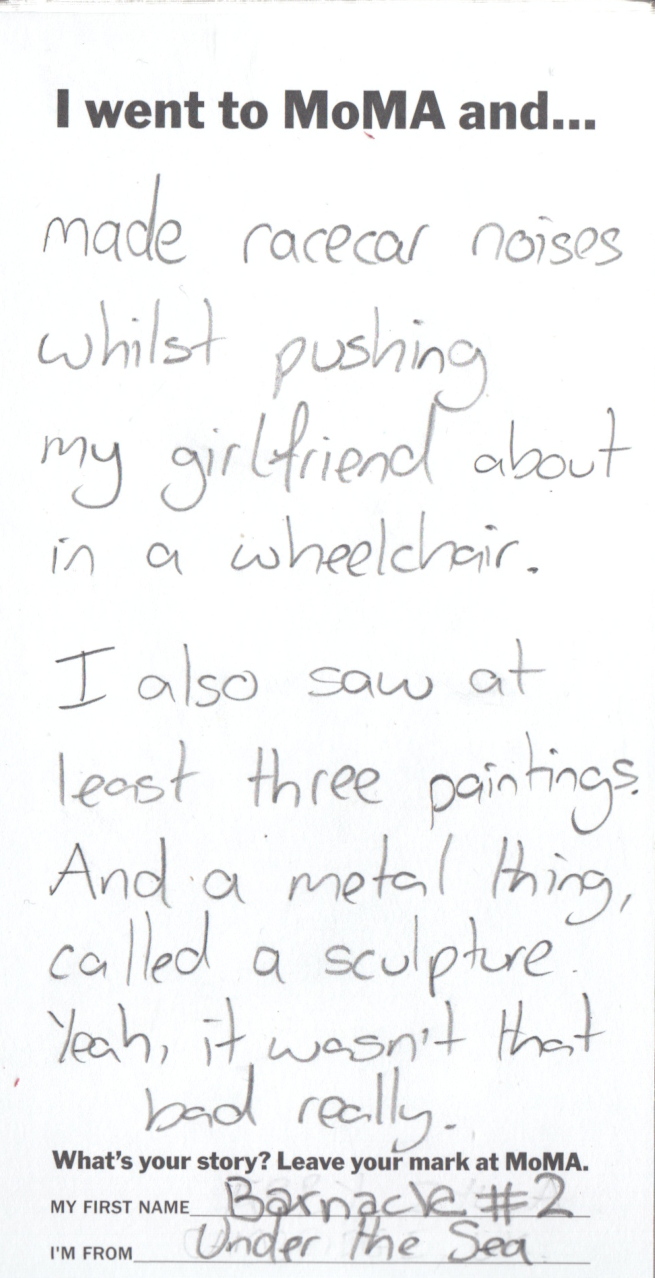 I went to MoMA and...
made racecar noises
whilst pushing
my girlfriend about
in a wheelchair.
I also saw at
least three paintings.
And a metal thing,
called a sculpture.
Yeah, it wasn't that
bad really.
What's your story? Leave your mark at MoMA.
MY FIRST NAME Barnacle #2
I'M FROM Under the Sea